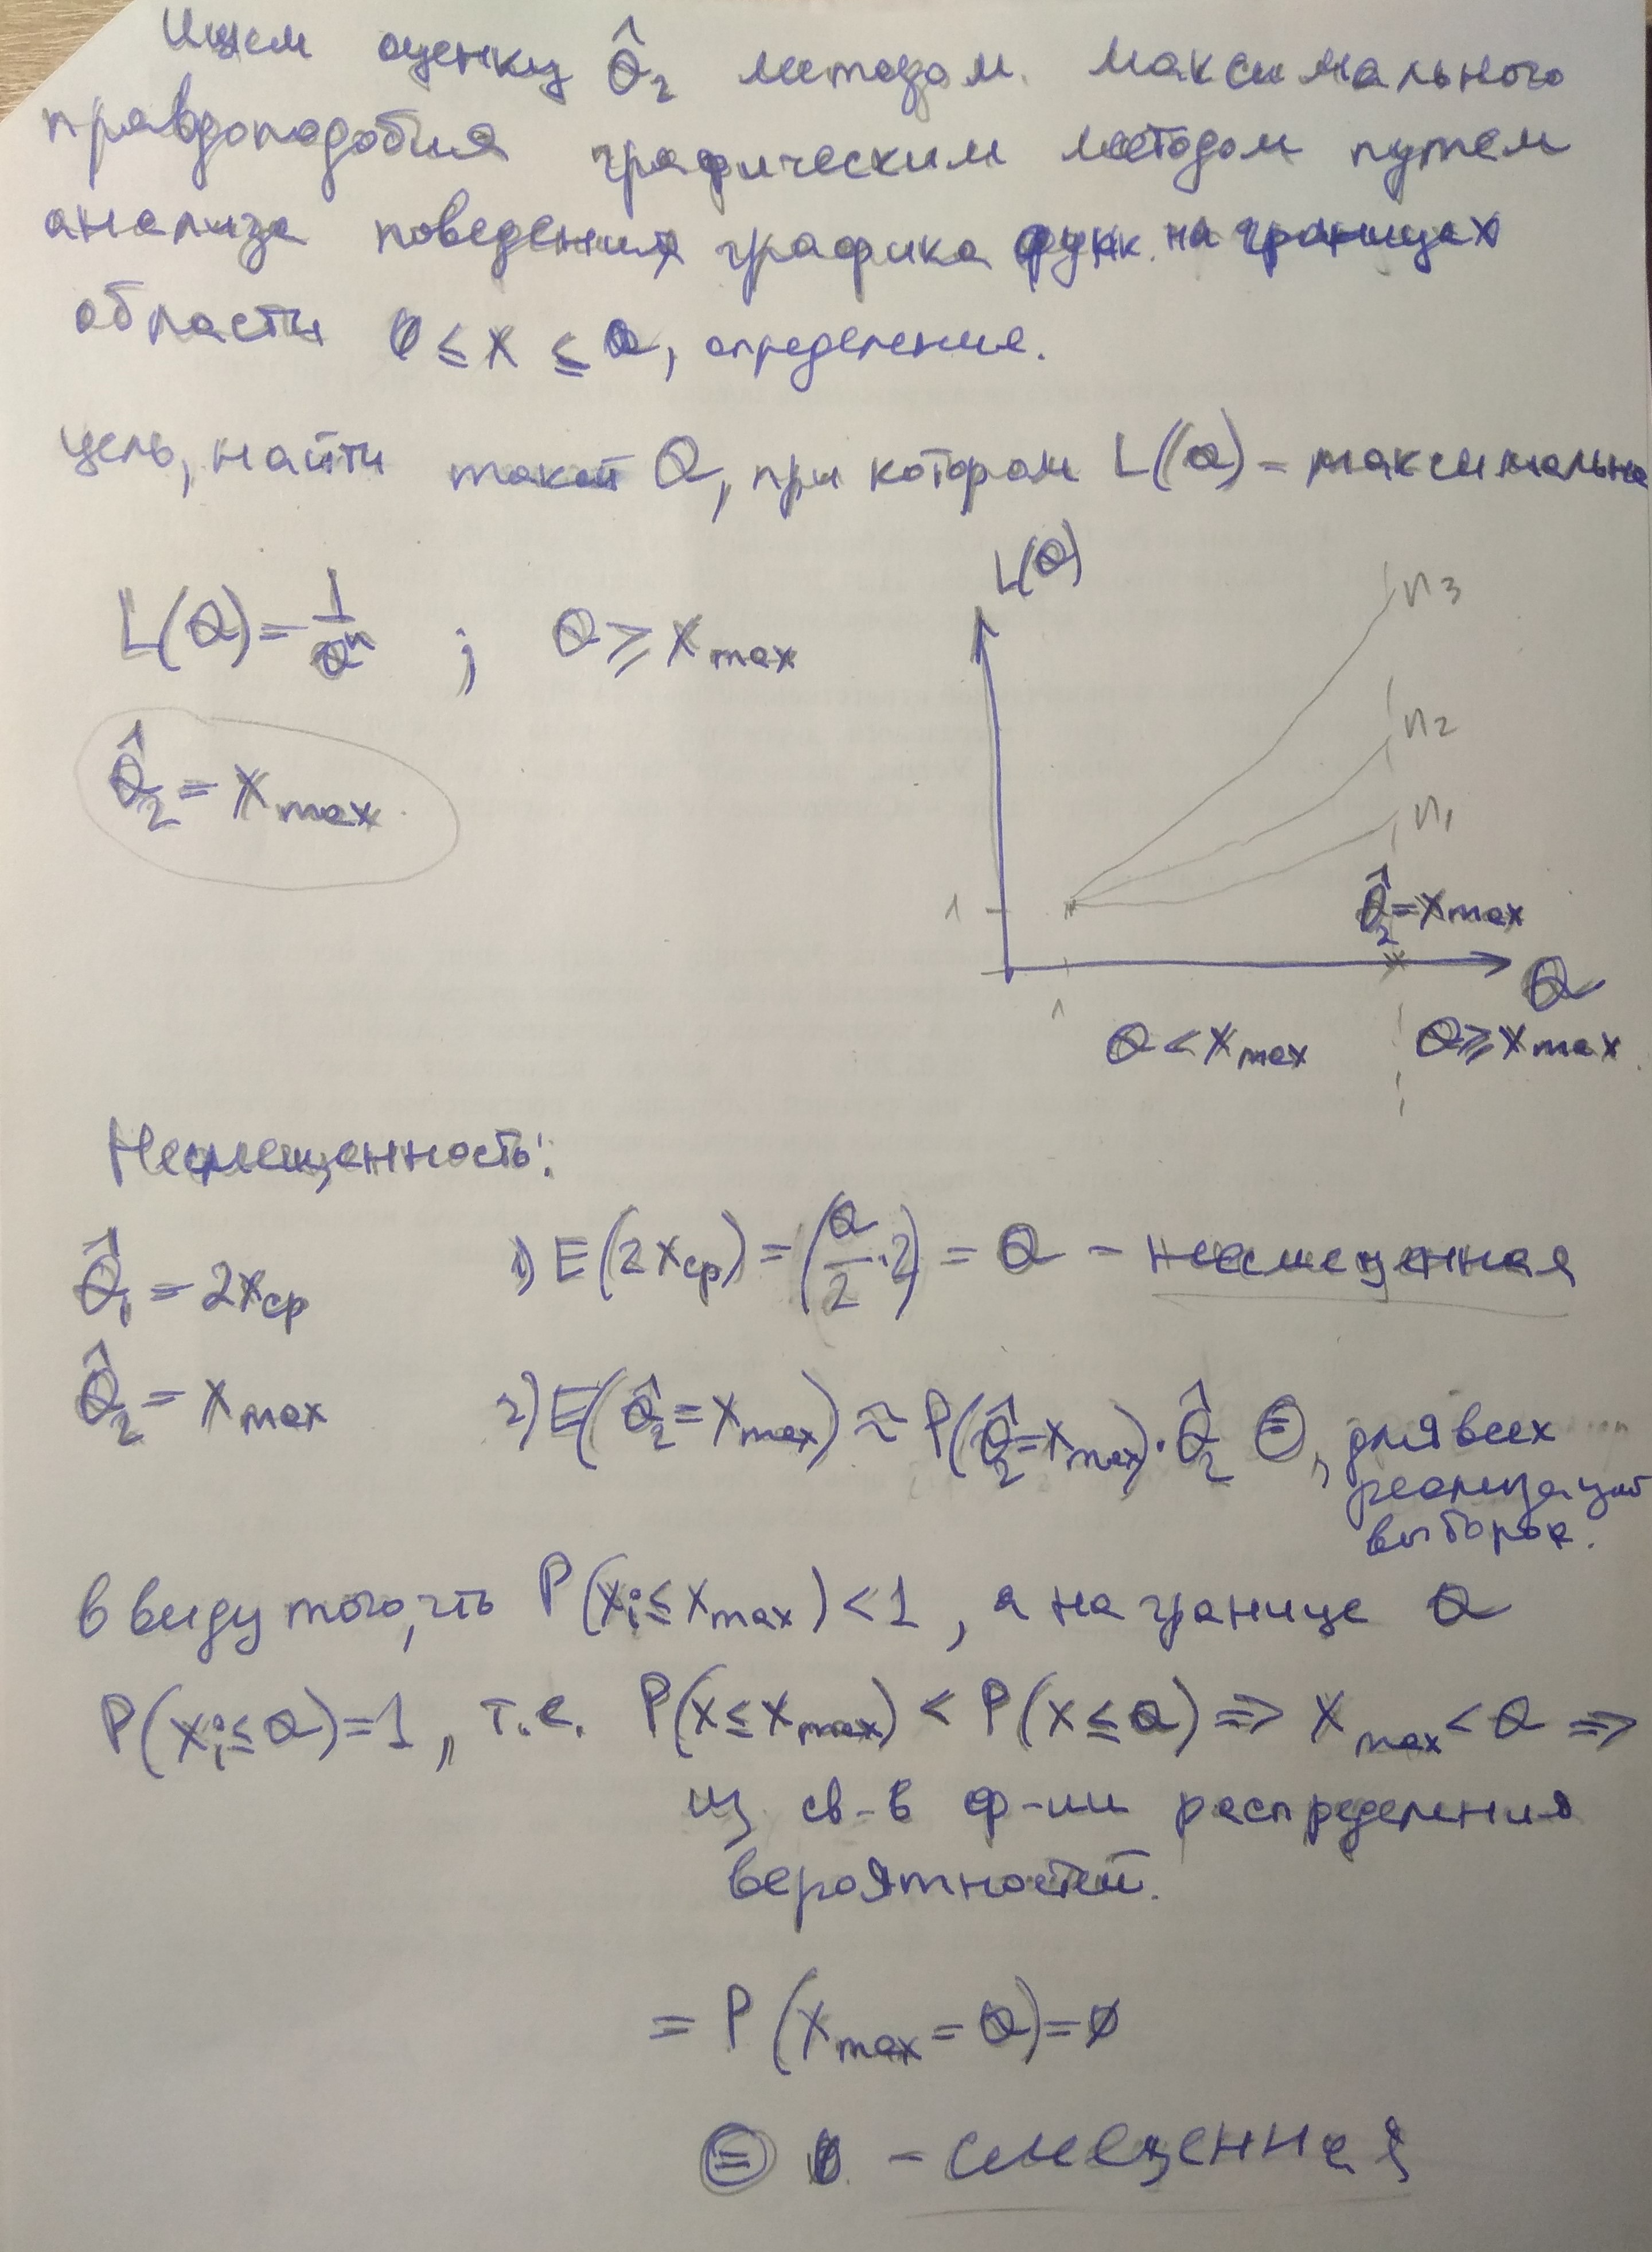 Ищем оценку θ̂₂ методом максимального
правдоподобия графическим методом путем
анализа поведения графика функ. на границах
области 0 ≤ x ≤ θ, определения.
цель, найти такой θ, при котором L(θ) – максимально
L(θ) = 1/θⁿ ; θ ≥ x max
θ̂₂ = x max
L(θ)
n₃
n₂
n₁
1
θ̂₂ = x max
θ
1
θ < x max θ ≥ x max
Несмещенность:
θ̂₁ = 2xср 1) E(2xср) = (θ/2 · 2) = θ – несмещенная
θ̂₂ = x max 2) E(θ̂₂ = x max) ≈ P(θ̂₂ = x max) · θ̂₂ ⊜, для всех
реализаций
выборок.
в виду того, что P(xi ≤ x max) < 1, а на границе θ
P(xi ≤ θ) = 1, т.е. P(x ≤ x max) < P(x ≤ θ) ⇒ x max < θ ⇒
из св-в ф-ии распределения
вероятностей.
= P(x max = θ) = ø
⊜ 0 – смещенная